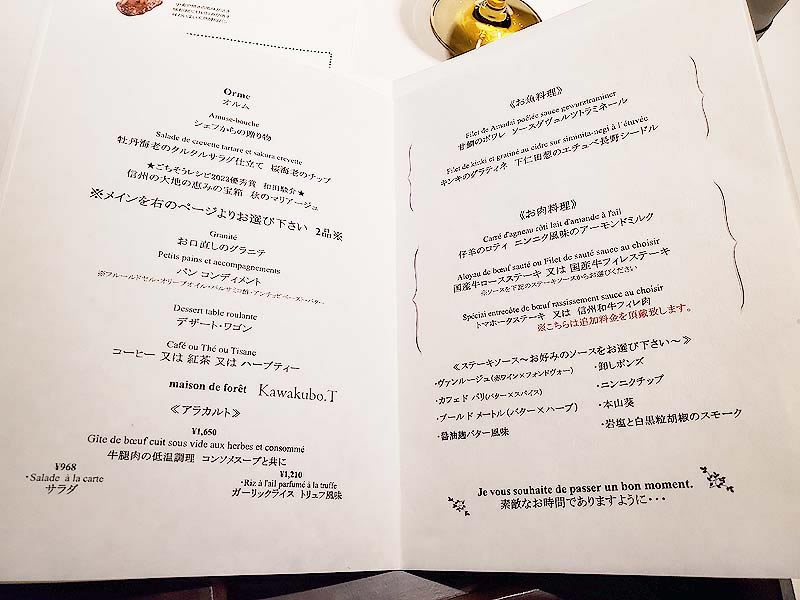 Orme
オルム
Amuse-bouche
シェフからの贈り物
Salade de crevette tartare et sakura crevette
牡丹海老のタルタルサラダ仕立て 桜海老のチップ
★ごちそうレシピ2023優秀賞 和田駿介★
信州の大地の恵みの宝箱 秋のマリアージュ
※メインを右のページよりお選び下さい 2品※
Granité
お口直しのグラニテ
Petits pains et accompagnements
パン コンディメント
※フルールドセル・オリーブオイル・バルサミコ酢・アンチョビペースト・バター
Dessert table roulante
デザート・ワゴン
Café ou Thé ou Tisane
コーヒー 又は 紅茶 又は ハーブティー
maison de forêt Kawakubo.T
≪アラカルト≫
¥1,650
Gîte de bœuf cuit sous vide aux herbes et consommé
牛腿肉の低温調理 コンソメスープと共に
¥968
・Salade à la carte
サラダ
¥1,210
・Riz à l'ail parfumé à la truffe
ガーリックライス トリュフ風味
≪お魚料理≫
Filet de Amadai poêlée sauce gewurztraminer
甘鯛のポワレ ソースグヴェルツトラミネール
Filet de kinki et gratiné au cidre sur simonita-negi à l'étuvée
キンキのグラティネ 下仁田葱のエチュベ長野シードル
≪お肉料理≫
Carré d'agneau rôti lait d'amande à l'ail
仔羊のロティ ニンニク風味のアーモンドミルク
Aloyau de bœuf sauté ou Filet de sauté sauce au choisir
国産牛ロースステーキ 又は 国産牛フィレステーキ
※ソースを下記のステーキソースからお選びください
Spécial entrecôte de bœuf rassissement sauce au choisir
トマホークステーキ 又は 信州和牛フィレ肉
※こちらは追加料金を頂戴致します。
≪ステーキソース～お好みのソースをお選び下さい～≫
・ヴァンルージュ(赤ワイン×フォンドヴォー)
・カフェド パリ(バター×スパイス)
・ブールド メートル(バター×ハーブ)
・醤油麹バター風味
・卸しポンズ
・ニンニクチップ
・本山葵
・岩塩と白黒粒胡椒のスモーク
Je vous souhaite de passer un bon moment.
素敵なお時間でありますように・・・